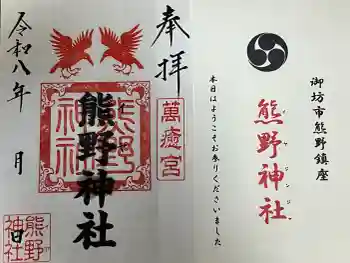 御坊市熊野鎮座
熊野神社
イヤジンジャ
本日はようこそお参りくださいました
奉拝
萬癒宮
熊野神社
熊野神社
令和八年 月 日
熊野神社